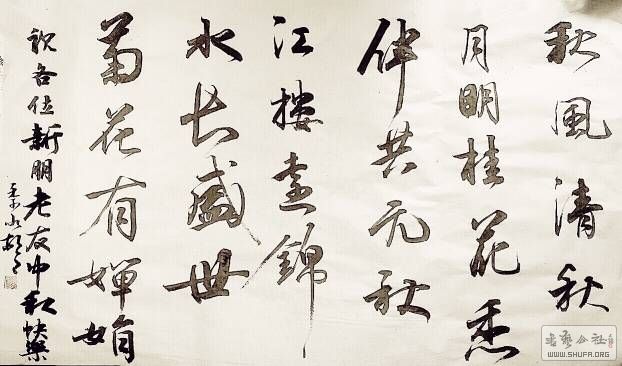 秋風清秋
月明桂花香
共无秋
江楼臺錦
水长盛世
菊花有婵娟
祝各位新朋老友中秋快樂
书艺公社
WWW.SHUFA.ORG